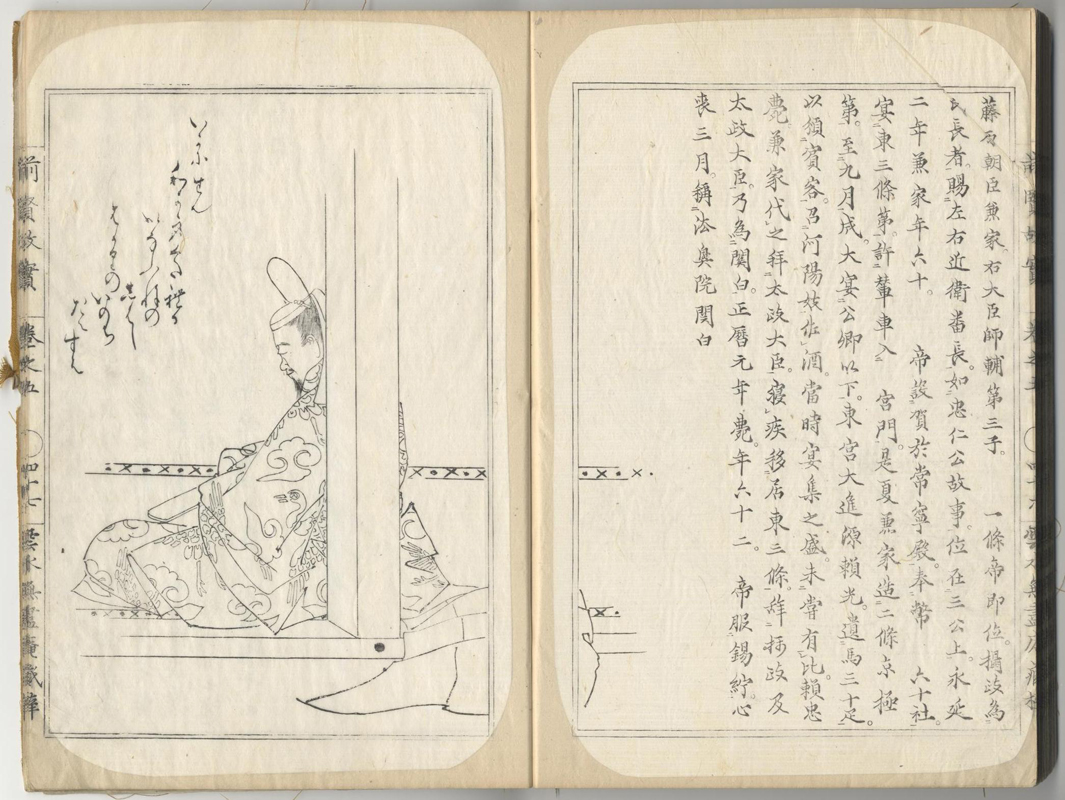 藤原朝臣兼家右大臣師輔第三子。　一條帝即位攝政為
氏長者。賜左右近衛番長。如忠仁公故事。位在三公上。永延
二年兼家年六十。　帝設賀於常寧殿。奉幣　六十社。
宴東三條第。許輦車入　宮門。是夏兼家造二條京極
第。至九月成。大宴公卿以下。東宮大進源賴光。遺馬三十疋。
以頒賓客。召河陽妓佐酒。當時宴集之盛。未嘗有比。賴忠
薨。兼家代之拜太政大臣。寢疾移居東三條。辞攝政及
太政大臣。乃為関白。正曆元年薨。年六十二。　帝服錫紵。心
喪三月。稱法興院関白
いかにせん
はかなの
いのち
なくすん
前賢故實　卷之五　四十七　雲水無盡庵藏梓